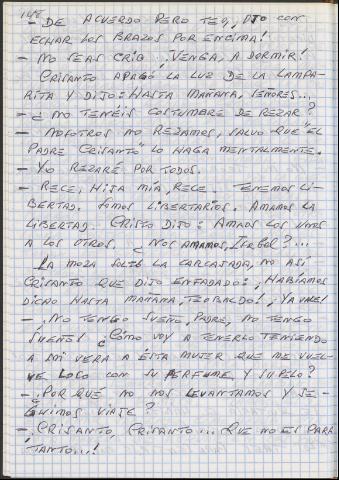 148
- DE ACUERDO PERO TEO, DIJO CON
ECHAR LOS BRAZOS POR ENCIMA!
- NO SEAS CRIO. ¡VENGA, A DORMIR!
CRISANTO APAGÓ LA LUZ DE LA LAMPA-
RITA Y DIJO: HASTA MAÑANA, SEÑORES...
- ¿NO TENÉIS COSTUMBRE DE REZAR?
- NOSOTROS NO REZAMOS, SALVO QUE EL
PADRE CRISANTO" LO HAGA MENTALMENTE.
- YO REZARÉ POR TODOS.
- RECE, HIJA MIA, RECE. TENEMOS LI-
BERTAD. SOMOS LIBERTARIOS. AMAMOS LA
LIBERTAD. CRISTO DIJO: AMAOS LOS UNOS
A LOS OTROS. ¿NOS AMAMOS,       ?...
LA MOZA SOLTÓ LA CARCAJADA, NO ASÍ
CRISANTO QUE DIJO ENFADADO: ¡HABÍAMOS
DICHO HASTA MAÑANA, TEOBALDO!, ¡YA VALE!
- ¡NO TENGO SUEÑO, PADRE, NO TENGO
SUEÑO! ¿CÓMO VOY A TENERLO TENIENDO
A MI VERA A ÉSTA MUJER QUE ME VUEL-
VE LOCO CON SU PERFUME Y SU PELO?
- ¿POR QUÉ NO NOS LEVANTAMOS Y SE-
GUIMOS VIAJE?
- CRISANTO, CRISANTO... QUE NO ES PARA
TANTO...!